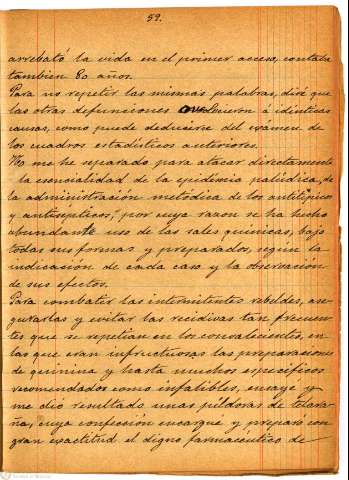 59.
arrebató la vida en el primer acceso, contaba
tambien 80 años.
Para no repetir las mismas palabras, diré que
las otras defunciones obedecieron á idénticas
causas, como puede deducirse del exámen de
los cuadros estadísticos anteriores.
No me he separado para atacar directamente
la esencialidad de la epidemia palúdica, de
la administración metódica de los antitípicos
y antisépticos; por cuya razon se ha hecho
abundante uso de las sales químicas, bajo
todas sus formas y preparados, según la
indicación de cada caso y la observación
de sus efectos.
Para combatir las intermitentes rebeldes, ase
gurarlas y evitar las recidivas tan frecuen
tes que se repetian en los convalecientes, en
las que eran infructuosas las preparaciones
de quinina y hasta muchos específicos
recomendados como infalibles, ensayé y
me dió resultado unas píldoras de telara
ña, cuya confección encargué y preparó con
gran exactitud el digno farmacéutico de